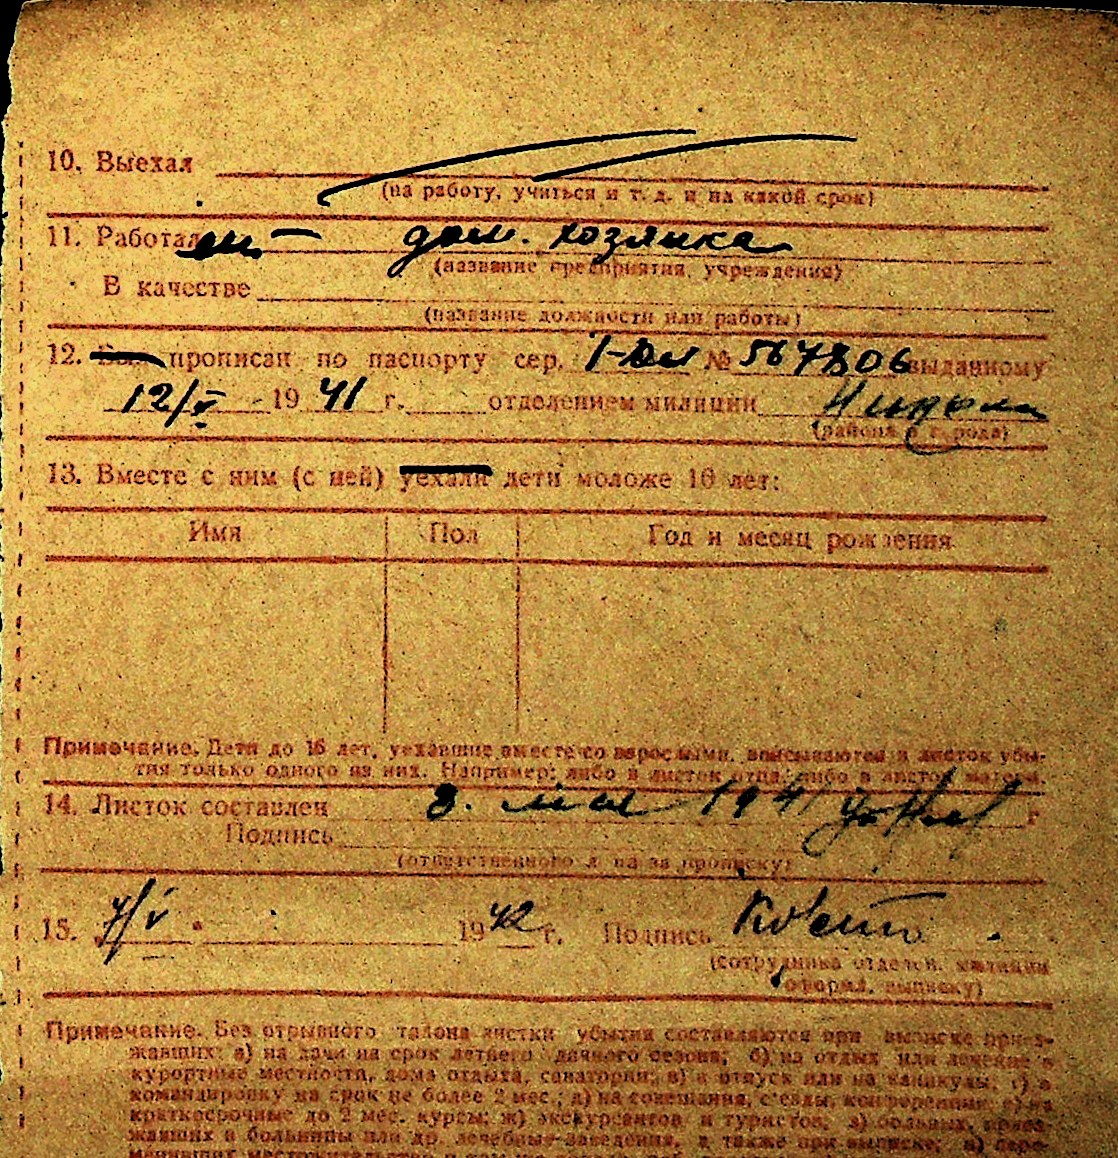 10. Выехал
(на работу, учиться и т. д. и на какой срок)
11. Работал дом. хозяйка
(название предприятия, учреждения)
В качестве
(название должности или работы)
12. прописан по паспорту сер. № 567806 выданному
12/V 1941 г. отделением милиции
(района и города)
13. Вместе с ним (с ней) уехали дети моложе 16 лет:
Имя Пол Год и месяц рождения
Примечание. Дети до 16 лет, уехавшие вместе со взрослыми, вписываются в листок убы-
тия только одного из них. Например: либо в листок отца, либо в листок матери.
14. Листок составлен 3. мая 1941 г
Подпись
(ответственного лица за прописку)
15. 7/V 1942 г. Подпись
(сотрудника отделен. милиции
оформл. выписку)
Примечание. Без отрывного талона листки убытия составляются при выписке приез-
жавших: а) на дачи на срок летнего дачного сезона; б) на отдых или лечение в
курортные местности, дома отдыха, санатории; в) в отпуск или на каникулы; г) в
командировку на срок не более 2 мес.; д) на совещания, съезды, конференции; е) на
краткосрочные до 2 мес. курсы; ж) экскурсантов и туристов; з) больных, приез-
жавших в больницы или др. лечебные заведения, а также при выписке; и) пере-